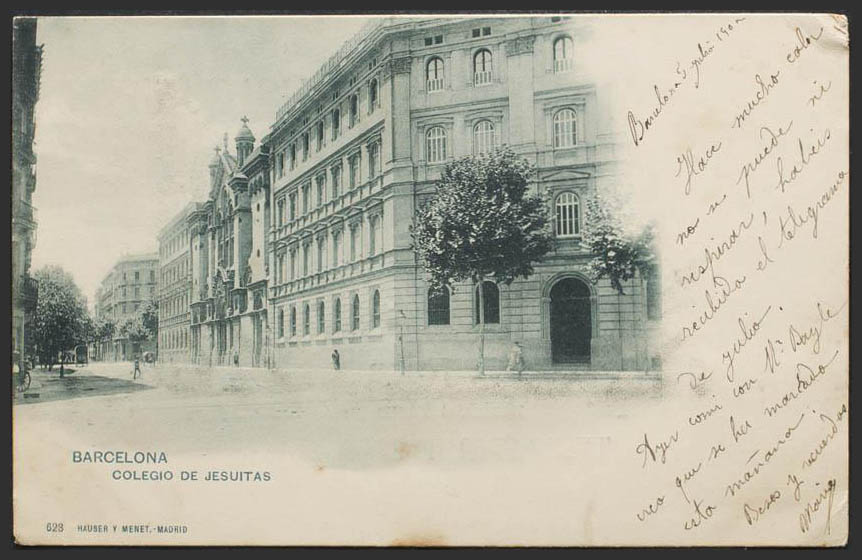 Barcelona 5 julio 1902
Hace mucho calor
no se puede ni
respirar, habeis
recibido el telegrama
de julio.
Ayer comi con Mr Bayle
creo que se ha marchado
esta mañana.
Besos y recuerdos
BARCELONA
COLEGIO DE JESUITAS
623 HAUSER Y MENET.-MADRID